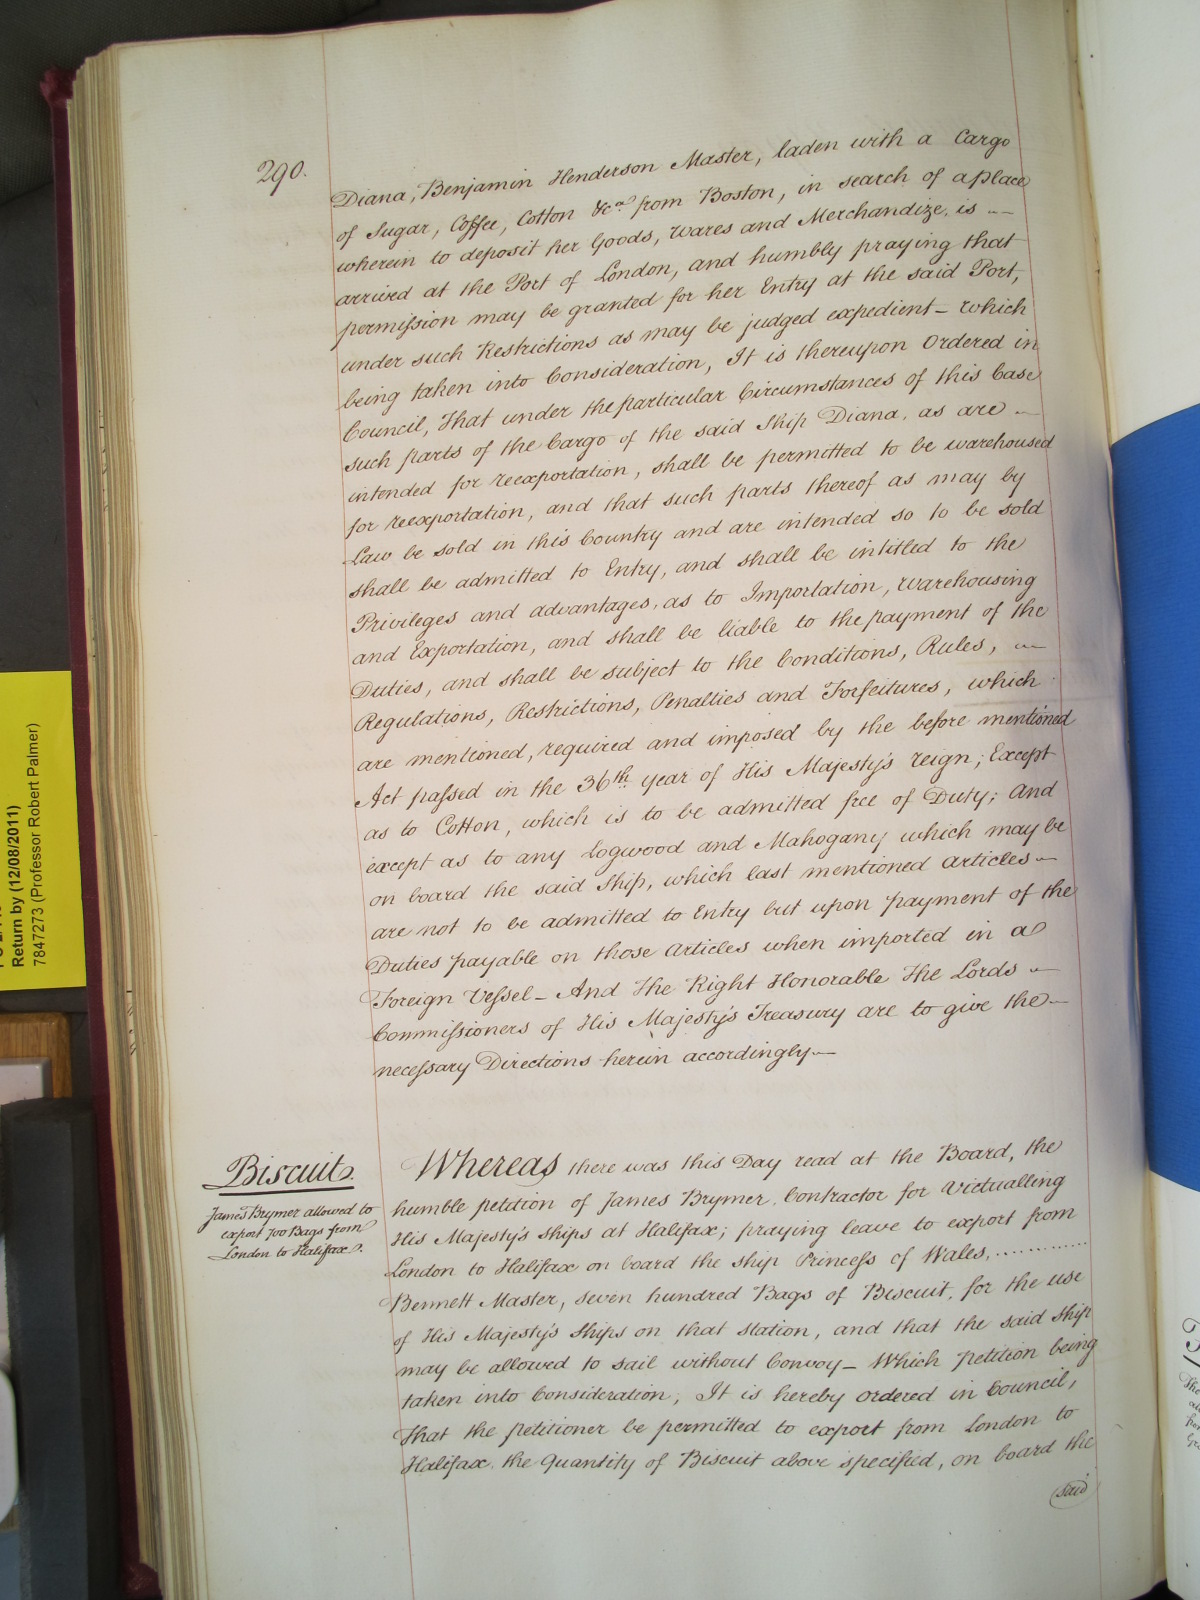 290.
Diana, Benjamin Henderson Master, laden with a Cargo
of Sugar, Coffee, Cotton &ca from Boston, in search of a Place
wherein to deposit her Goods, Wares and Merchandize, is
arrived at the Port of London, and humbly praying that
permission may be granted for her Entry at the said Port,
under such Restrictions as may be judged expedient – Which
being taken into Consideration, It is thereupon Ordered in
Council, That under the particular Circumstances of this Case
such parts of the Cargo of the said Ship Diana, as are
intended for reexportation, shall be permitted to be warehoused
for reexportation, and that such parts thereof as may by
Law be sold in this Country and are intended so to be sold
shall be admitted to Entry, and shall be intitled to the
Privileges and advantages, as to Importation, Warehousing
and Exportation, and shall be liable to the payment of the
Duties, and shall be subject to the Conditions, Rules,
Regulations, Restrictions, Penalties and Forfeitures, which
are mentioned, required and imposed by the before mentioned
Act passed in the 36th year of His Majesty's reign; Except
as to Cotton, which is to be admitted free of Duty; and
except as to any Logwood and Mahogany which may be
on board the said Ship, which last mentioned articles
are not to be admitted to Entry but upon payment of the
Duties payable on those Articles when imported in a
Foreign Vessel – And The Right Honorable The Lords
Commissioners of His Majesty's Treasury are to give the
necessary Directions herein accordingly
Biscuit.
James Brymer allowed to
export 700 Bags from
London to Halifax.
Whereas there was this Day read at the Board, the
humble petition of James Brymer, Contractor for Victualling
His Majesty's Ships at Halifax; praying leave to export from
London to Halifax on board the ship Princess of Wales, ............
Bennett Master, seven hundred Bags of Biscuit, for the use
of His Majesty's Ships on that Station, and that the said Ship
may be allowed to sail without Convoy – Which petition being
taken into Consideration, It is hereby ordered in Council,
That the petitioner be permitted to export from London to
Halifax, the Quantity of Biscuit above specified, on board the
said
Return by (12/08/2011)
7847273 (Professor Robert Palmer)